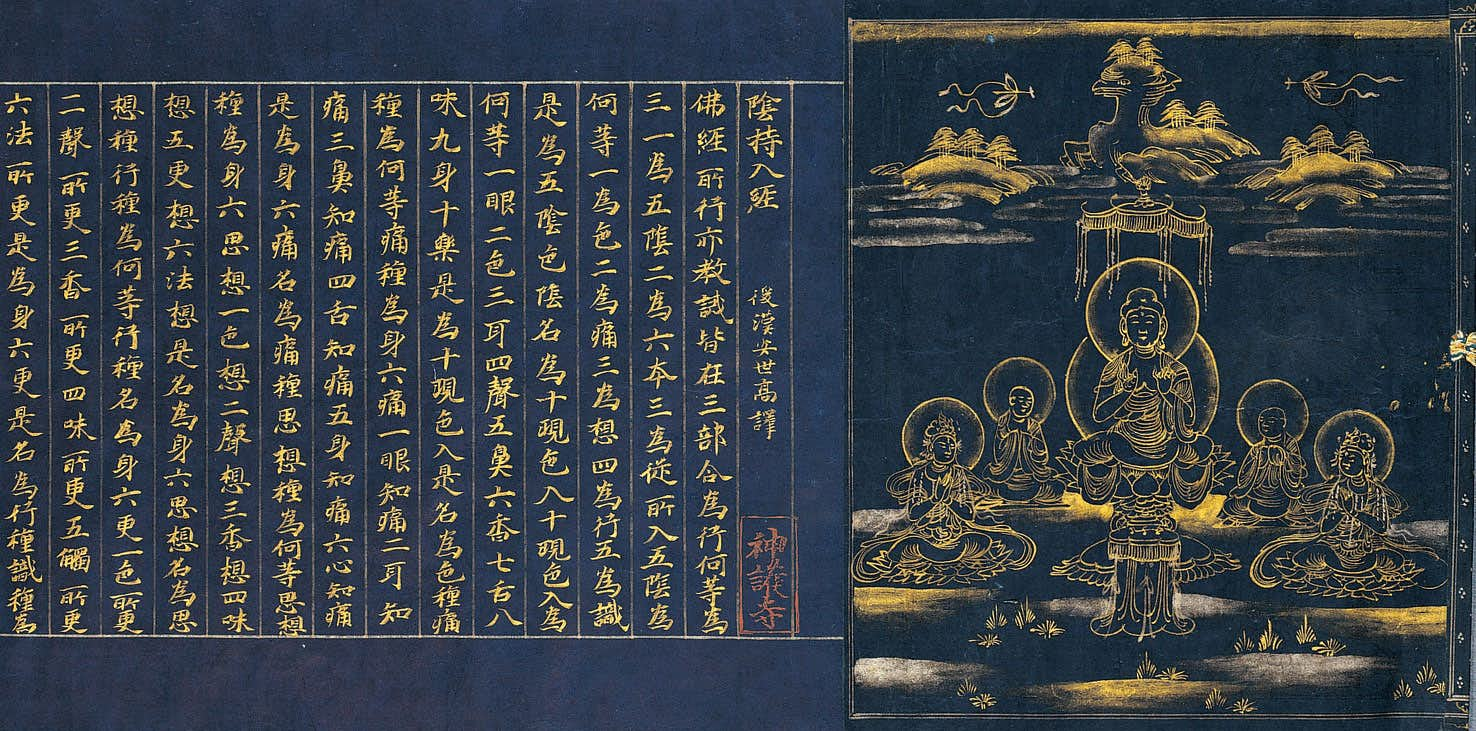 陰持入經 後漢安世高譯
神護寺
佛經所行亦教誡皆在三部合為行何等為
三一為五陰二為六本三為從所入五陰為
何等一為色二為痛三為想四為行五為識
是為五陰色陰名為十現色入十現色入為
何等一眼二色三耳四聲五鼻六香七舌八
味九身十樂是為十現色入是名為色種痛
種為何等痛種為身六痛一眼知痛二耳知
痛三鼻知痛四舌知痛五身知痛六心知痛
是為身六痛名為痛種思想種為何等思想
種為身六思想一色想二聲想三香想四味
想五更想六法想是名為身六思想名為思
想種行種為何等行種名為身六更一色所更
二聲所更三香所更四味所更五觸所更
六法所更是為身六更是名為行種識種為